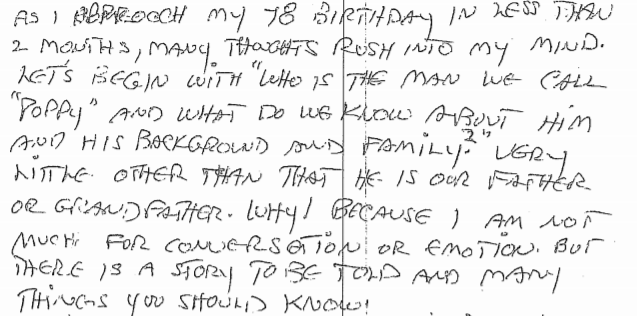 AS I APPROOCH MY 78 BIRTHDAY IN LESS THAN
2 MONTHS, MANY THOUGHTS RUSH INTO MY MIND.
LET'S BEGIN WITH "WHO IS THE MAN WE CALL
"POPPY" AND WHAT DO WE KNOW ABOUT HIM
AND HIS BACKGROUND AND FAMILY?" VERY
LITTLE. OTHER THAN THAT HE IS OUR FATHER
OR GRANDFATHER. WHY! BECAUSE I AM NOT
MUCH FOR CONVERSETION OR EMOTION. BUT
THERE IS A STORY TO BE TOLD AND MANY
THINGS YOU SHOULD KNOW!